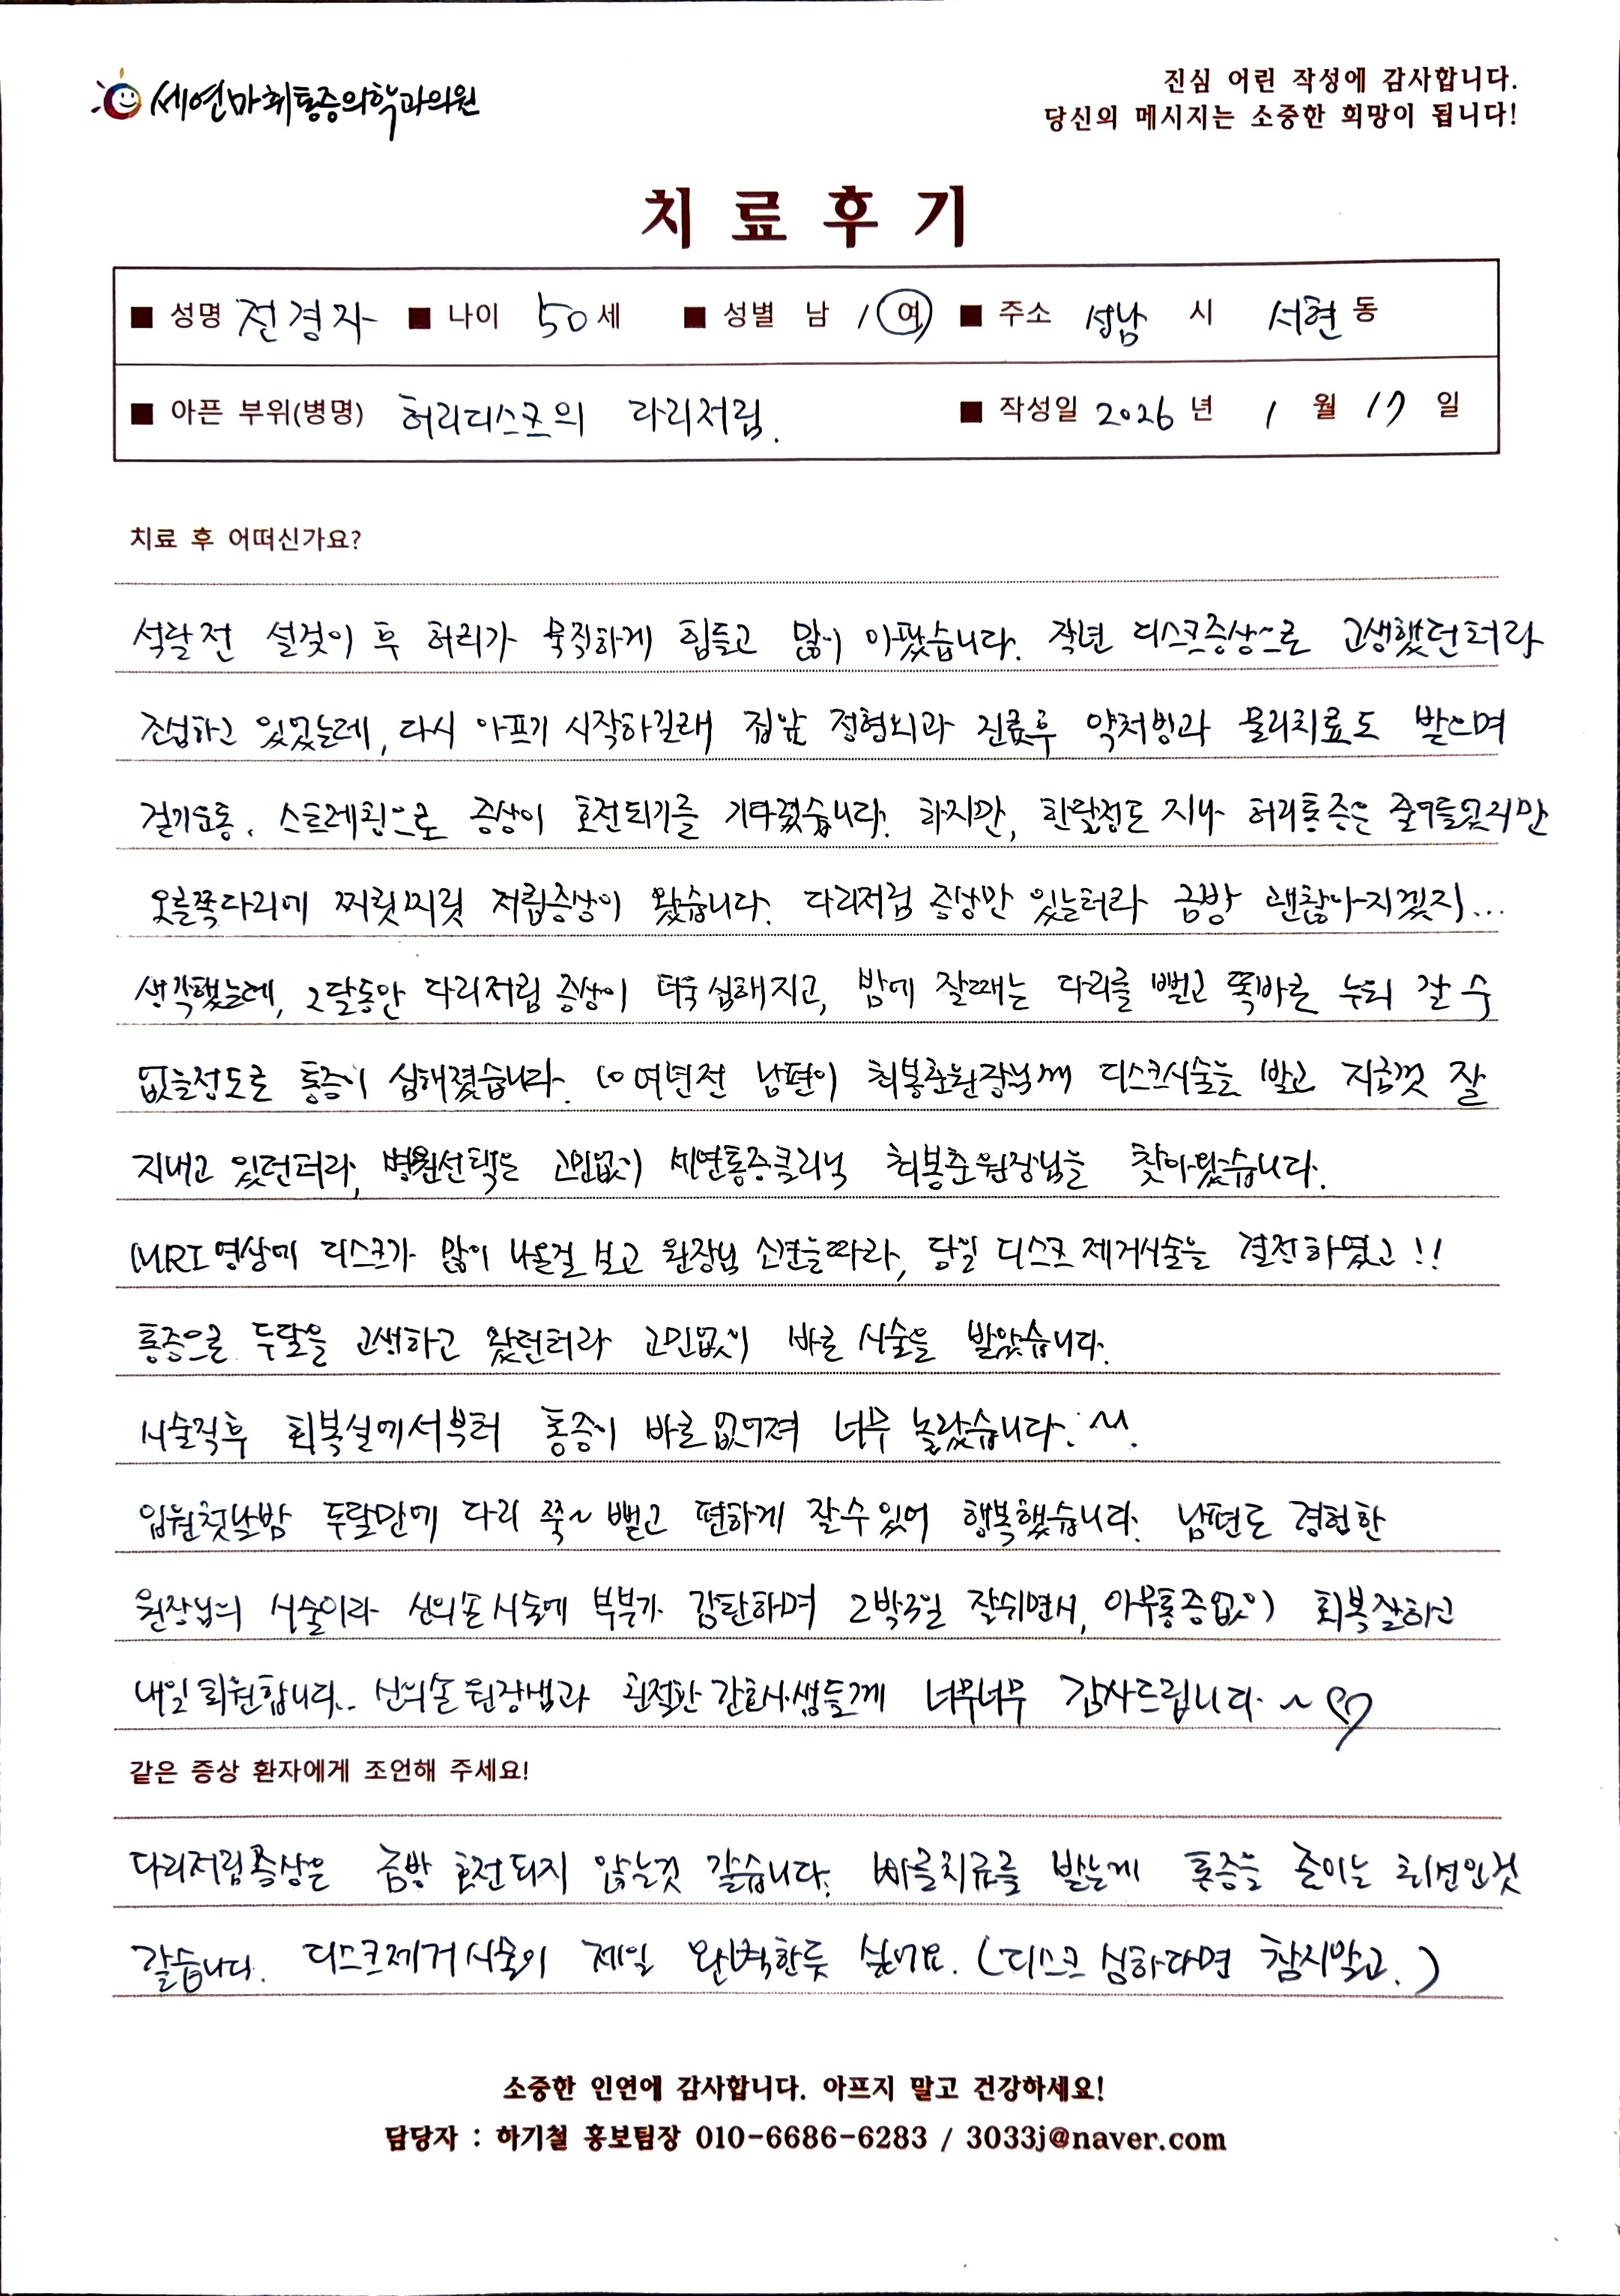 세연마취통증의학과의원
진심 어린 작성에 감사합니다.
당신의 메시지는 소중한 희망이 됩니다!
치료후기
■ 성명 전경자 ■ 나이 50세 ■ 성별 남 / 여 ■ 주소 성남 시 서현동
■ 아픈 부위(병명) 허리디스크의 다리저림. ■ 작성일 2026년 1월 17일
치료 후 어떠신가요?
석달전 설겆이 후 허리가 묵직하게 힘들고 많이 아팠습니다. 작년 디스크증상으로 고생했던터라
조심하고 있었는데, 다시 아프기 시작하길래 집앞 정형외과 진료후 약처방과 물리치료도 받으며
걷기운동, 스트레칭으로 증상이 호전되기를 기다렸습니다. 하지만, 한달정도 지나 허리통증은 줄어들었지만
오른쪽다리에 찌릿찌릿 저림증상이 왔습니다. 다리저림 증상만 있는터라 금방 괜찮아지겠지...
생각했는데, 2달동안 다리저림 증상이 더욱 심해지고, 밤에 잘때는 다리를 뻗고 똑바로 누워 잘 수
없을정도로 통증이 심해졌습니다. 10여년전 남편이 최봉춘원장님께 디스크시술을 받고 지금껏 잘
지내고 있던터라, 병원선택은 고민없이 세연통증클리닉 최봉춘원장님을 찾아왔습니다.
MRI영상에 디스크가 많이 나온걸 보고 원장님 소견을따라, 당일 디스크 제거시술을 결정하였고!!
통증으로 두달을 고생하고 왔던터라 고민없이 바로 시술을 받았습니다.
시술직후 회복실에서부터 통증이 바로 없어져 너무 놀랐습니다.^^.
입원첫날밤 두달만에 다리 쭉~ 뻗고 편하게 잘수있어 행복했습니다. 남편도 경험한
원장님의 시술이라 신의손 시술에 부부가 감탄하며 2박3일 잘쉬면서, 아무통증없이 회복잘하고
내일 퇴원합니다.. 신의손 원장샘과 친절한 간호사샘들께 너무너무 감사드립니다~♡
같은 증상 환자에게 조언해 주세요!
다리저림증상은 금방 호전되지 않는것 같습니다. 빠른치료를 받는게 통증을 줄이는 최선인것
같습니다. 디스크제거시술이 제일 완벽한듯 싶어요. (디스크 심하다면 참지말고.)
소중한 인연에 감사합니다. 아프지 말고 건강하세요!
담당자 : 하기철 홍보팀장 010-6686-6283 / 3033j@naver.com